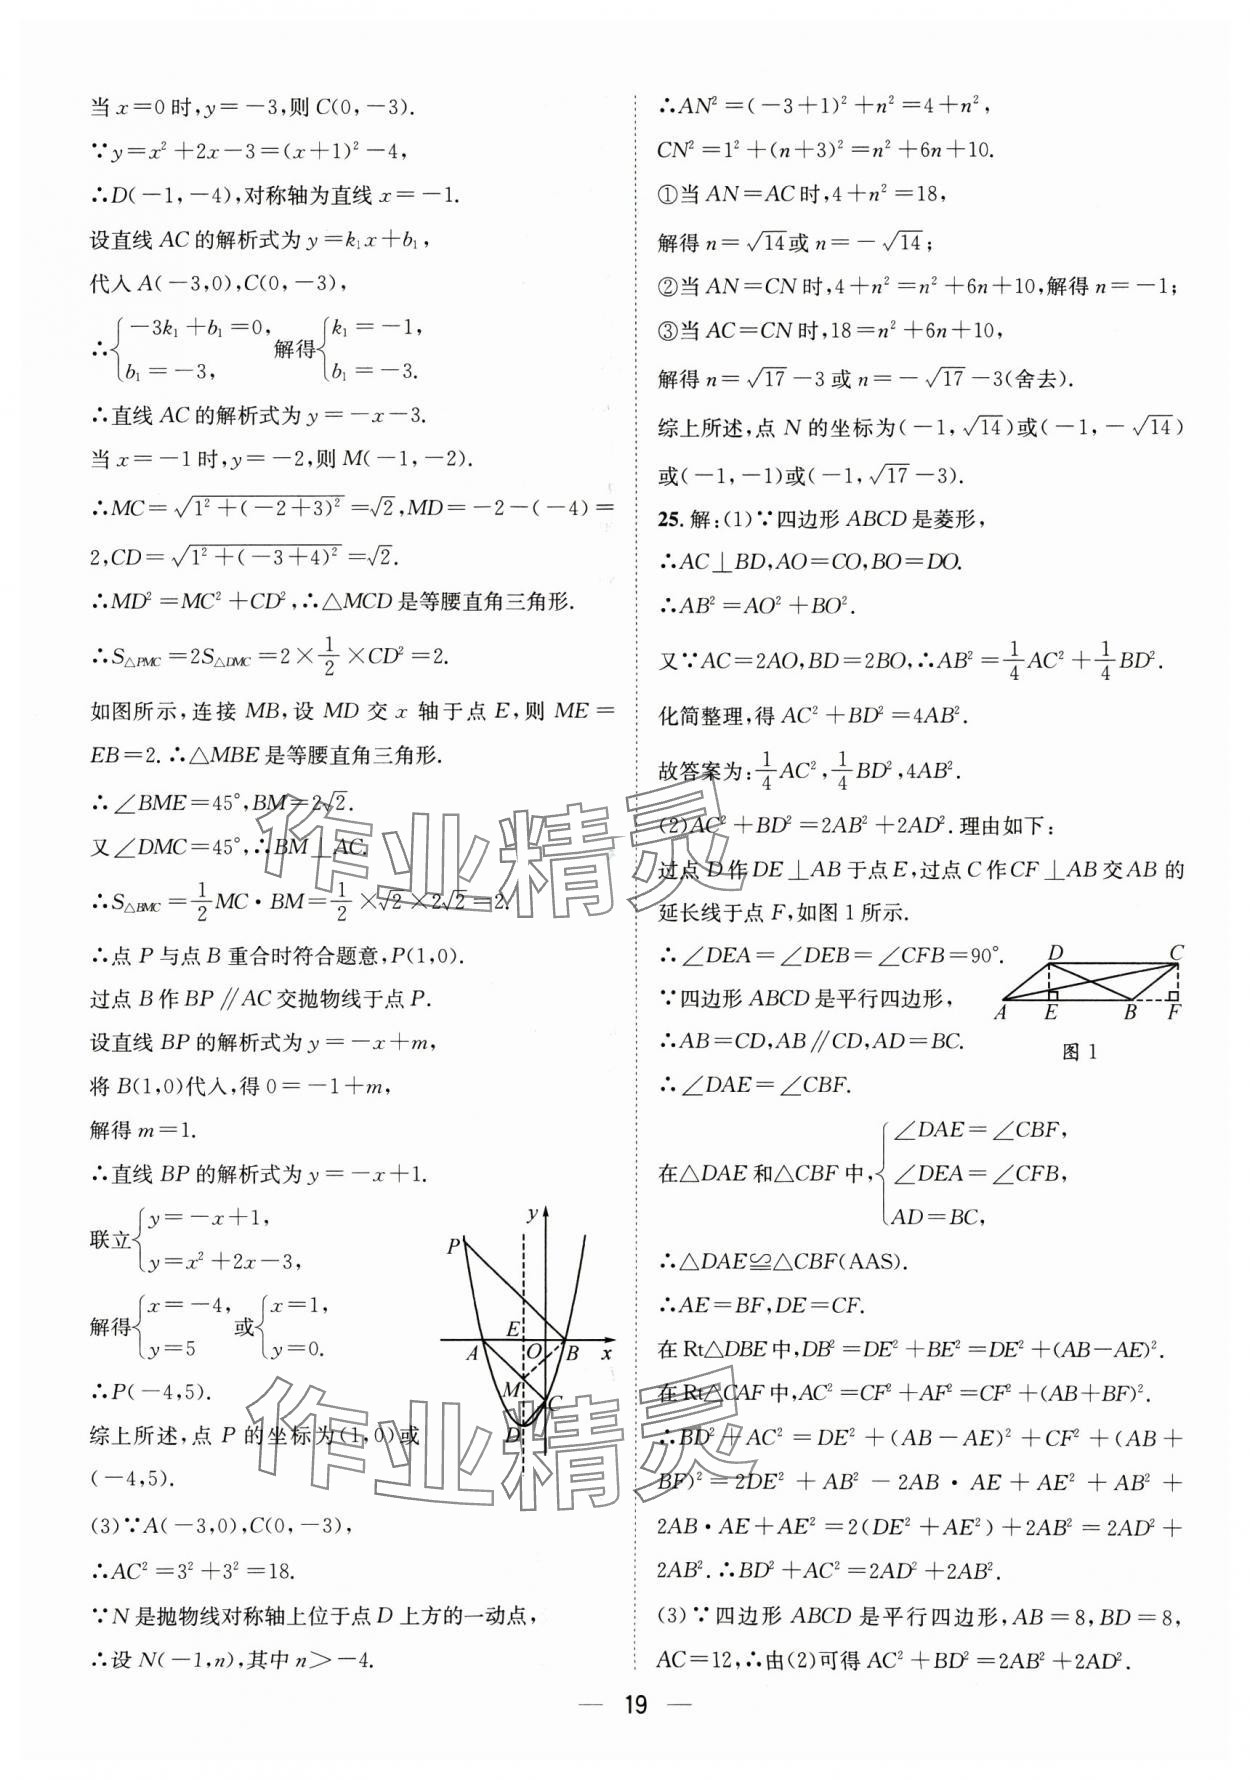 当 x=0 时,y=-3,则 C(0,-3).
∵y=x²+2x-3=(x+1)²-4,
∴D(-1,-4),对称轴为直线 x=-1.
设直线 AC 的解析式为 y=k₁x+b₁,
代入 A(-3,0),C(0,-3),
∴{-3k₁+b₁=0, b₁=-3, 解得{k₁=-1, b₁=-3.
∴直线 AC 的解析式为 y=-x-3.
当 x=-1 时,y=-2,则 M(-1,-2).
∴MC=√(1²+(-2+3)²)=√2,MD=-2-(-4)=
2,CD=√(1²+(-3+4)²)=√2.
∴MD²=MC²+CD²,∴△MCD 是等腰直角三角形.
∴S△PMC=2S△DMC=2×1/2×CD²=2.
如图所示,连接 MB,设 MD 交 x 轴于点 E,则 ME=
EB=2.∴△MBE 是等腰直角三角形.
∴∠BME=45°,BM=2√2.
又∠DMC=45°,∴BM⊥AC.
∴S△BMC=1/2MC·BM=1/2×√2×2√2=2.
∴点 P 与点 B 重合时符合题意,P(1,0).
过点 B 作 BP∥AC 交抛物线于点 P.
设直线 BP 的解析式为 y=-x+m,
将 B(1,0)代入,得 0=-1+m,
解得 m=1.
∴直线 BP 的解析式为 y=-x+1.
联立{y=-x+1, y=x²+2x-3,
解得{x=-4, y=5 或{x=1, y=0.
∴P(-4,5).
综上所述,点 P 的坐标为(1,0)或
(-4,5).
y
P
E
A
O
B
x
M
C
D
(3)∵A(-3,0),C(0,-3),
∴AC²=3²+3²=18.
∵N 是抛物线对称轴上位于点 D 上方的一动点,
∴设 N(-1,n),其中 n>-4.
∴AN²=(-3+1)²+n²=4+n²,
CN²=1²+(n+3)²=n²+6n+10.
①当 AN=AC 时,4+n²=18,
解得 n=√14或 n=-√14;
②当 AN=CN 时,4+n²=n²+6n+10,解得 n=-1;
③当 AC=CN 时,18=n²+6n+10,
解得 n=√17-3 或 n=-√17-3(舍去).
综上所述,点 N 的坐标为(-1,√14)或(-1,-√14)
或(-1,-1)或(-1,√17-3).
25.解:(1)∵四边形 ABCD 是菱形,
∴AC⊥BD,AO=CO,BO=DO.
∴AB²=AO²+BO².
又∵AC=2AO,BD=2BO,∴AB²=1/4AC²+1/4BD².
化简整理,得 AC²+BD²=4AB².
故答案为:1/4AC²,1/4BD²,4AB².
(2)AC²+BD²=2AB²+2AD².理由如下:
过点 D 作 DE⊥AB 于点 E,过点 C 作 CF⊥AB 交 AB 的
延长线于点 F,如图 1 所示.
∴∠DEA=∠DEB=∠CFB=90°.
∵四边形 ABCD 是平行四边形,
∴AB=CD,AB∥CD,AD=BC.
∴∠DAE=∠CBF.
D
C
A
E
B
F
图 1
在△DAE 和△CBF 中,{∠DAE=∠CBF, ∠DEA=∠CFB, AD=BC,
∴△DAE≌△CBF(AAS).
∴AE=BF,DE=CF.
在 Rt△DBE 中,DB²=DE²+BE²=DE²+(AB-AE)².
在 Rt△CAF 中,AC²=CF²+AF²=CF²+(AB+BF)².
∴BD²+AC²=DE²+(AB-AE)²+CF²+(AB+
BF)²=2DE²+AB²-2AB·AE+AE²+AB²+
2AB·AE+AE²=2(DE²+AE²)+2AB²=2AD²+
2AB².∴BD²+AC²=2AD²+2AB².
(3)∵四边形 ABCD 是平行四边形,AB=8,BD=8,
AC=12,∴由(2)可得 AC²+BD²=2AB²+2AD².
— 19 —
作业精灵
作业精灵